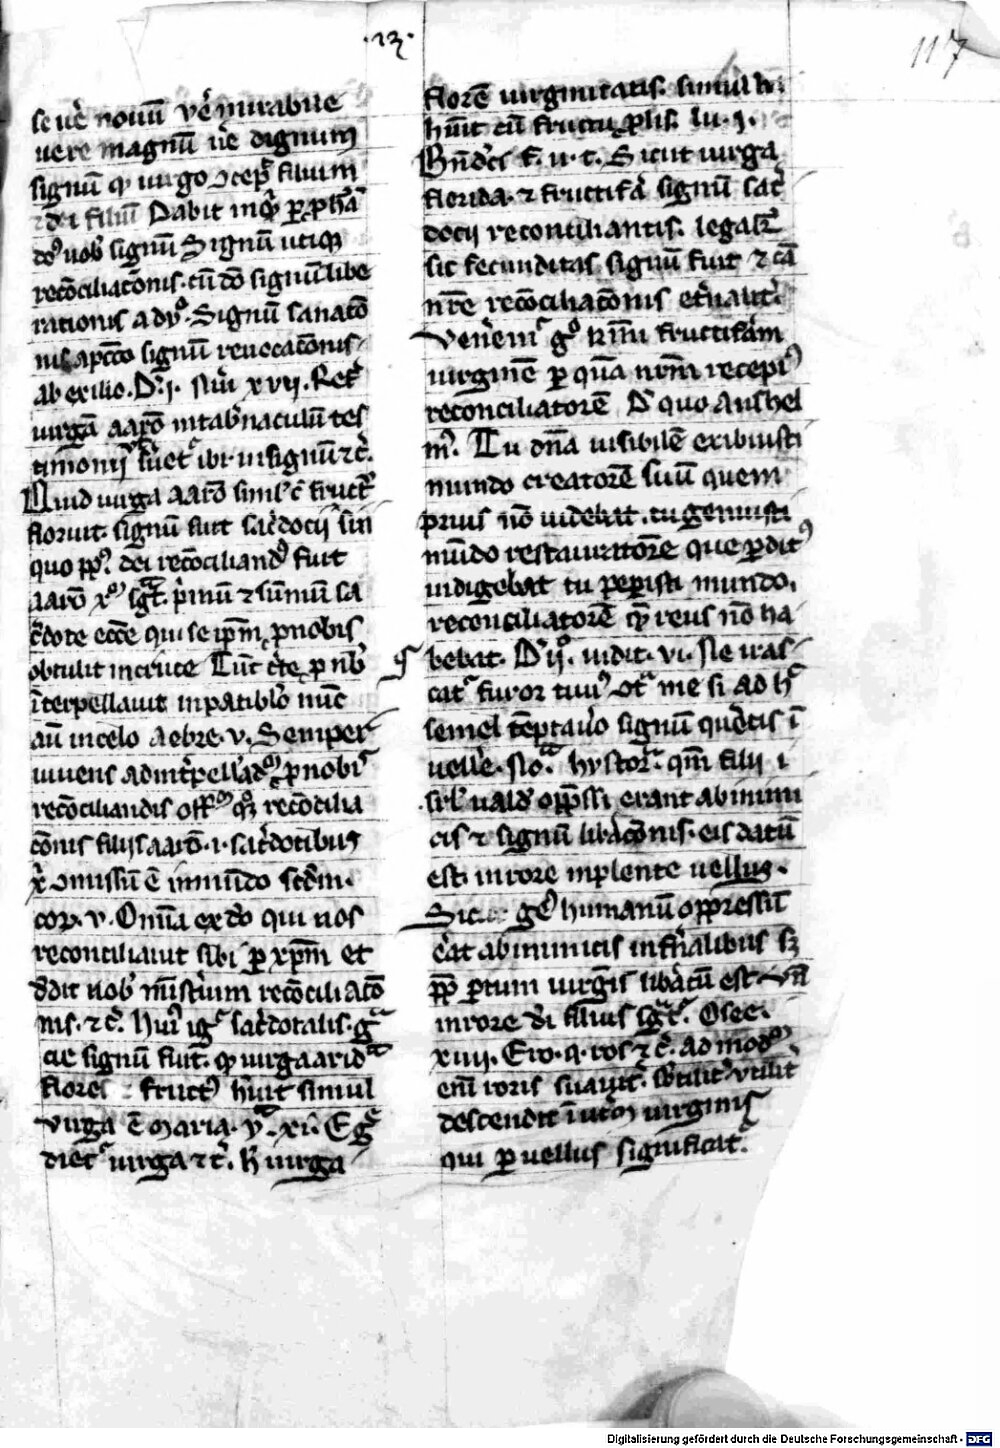 ·13·
117
se uẽ nouũ vẽ mirabile
uere magnũ ũe dignum
signũ ꝙ uirgo ꝯcep̃ filium
⁊ dei filiũ Dabit inq̃ ꝑ ꝓphã
dñs uob signũ Signũ utiqꝫ
recõciliatõnis. cũ dõ signũ libe
rationis a dyᵒ. Signũ sanatõ
nis
signũ reuocatõnis
ab exilio. Dñi. Nũi xvii. Refer
uirgã aarõ in tab̃naculũ tes
timonij ut ẽuetᵉ ibi in signũ ⁊c̃.
Quid uirga aarõ simᵉ c̃ fructᵘ
floruit. signũ fuit sac̃docij sui
quo ppᵗˢ dei recõciliandᵒ fuit
aarõ xᵒ sgᵗ. p̃mũ ⁊ sũmũ sa
c̃dote ecc̃e qui se ip̃m ꝓ nobis
obtulit in cruce Tũc c̃te ꝓ nob̃
ĩterpellauit in patib̃lo nũc
aũ in celo Aebre. v. Semper
uiuens ad int̃pellãdᵘ ꝓ nobis
recõciliandis offᵐ qꝫ recõcilia
cõnis filijs aarõ .i. sac̃dotibus
xͥ ꝯmissũ ẽ in mũdo scdm.
cor. v. Omnia ex dõ qui nos
reconciliauit sibi ꝑ xp̃m et
ddit nob̃ mĩst̃ium recõciliatõ
nis. ⁊c̃. Huiᵘ igᵉ sac̃dotalis gᵃ
cie signũ fuit. ꝙ uirga arida
flores ⁊ fructᵘˢ hũit simul
Virga ẽ maria. yᵃ. xi. Egᵉ
dietᵘ uirga ⁊c̃. H uirga
florẽ uirginitatis. simul
hũit cũ fructu ꝓlis. lu. i.
Bñdcs f. u. t. Sicut uirga
florida. ⁊ fructifã signũ sac̃
docij reconciliantis. legalit̃
sic fecunditas signũ fuit ⁊ cã
nr̃e recõciliatõnis et̃nalit̃.
Venẽemᵘ gᵒ hãnc fructifãm
uirginẽ ꝑ quã nr̃m recepiᵐᵘˢ
reconciliatorẽ Dᵉ quo Anshel
mᵘ. Tu dña uisibilẽ exibuisti
mundo creatorẽ suũ quem
prius nõ uidebat. tu genuisti
mũdo restauratõre que ꝑditᵘˢ
indigebat tu peperisti mundo.
reconciliatorẽ qᵐ reus nõ ha
bebat. Dᵉ ijᵒ. iudic̃. vi. Ne iras
catᵘ furor tuus ꝯtᵃ me si ad hᶜ
semel tẽptauẽo signũ querẽtis ĩ
uellẽe. Noᵗᵃ hystorᵃ. qm̃ filij i
srl̃ ualdᵉ opp̃ssi erant ab inimi
cis ⁊ signũ lib̃acõnis. eis datũ
est. in rore inplente uellus.
Sicut gẽ humanũ oppressũ
ẽat ab inimicis inf̃nalibus sꝫ
ꝓp̃ ꝑtum uirgĩs lib̃atũ est
in rore dei filius sgᵗ. Osee.
xiiij. Ero. q. ros ⁊c̃. Ad modᵘ
eni roris suauit̃. sb̃tilit̃ utilit̃
descendit ĩ ut̃ũ uirginis
qui ꝑ uellus significat̃.
Digitalisierung gefördert durch die Deutsche Forschungsgemeinschaft - DFG